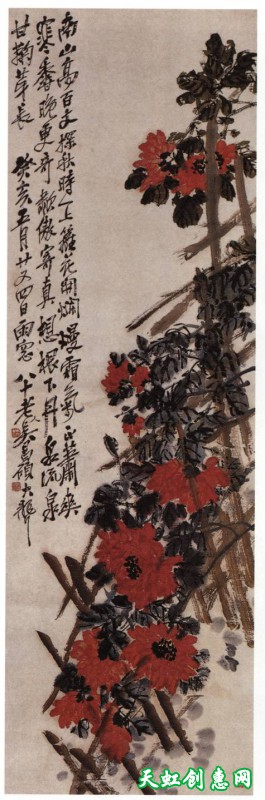 南山高百丈探秋時一上籬花開爛漫霜氣正蕭爽
寒香晚更奇嘯傲寄真想根下丹泉流泉
甘鞠草長 癸亥五月廿又四日雨窗 八十老吳昌碩大聾
天虹创惠网